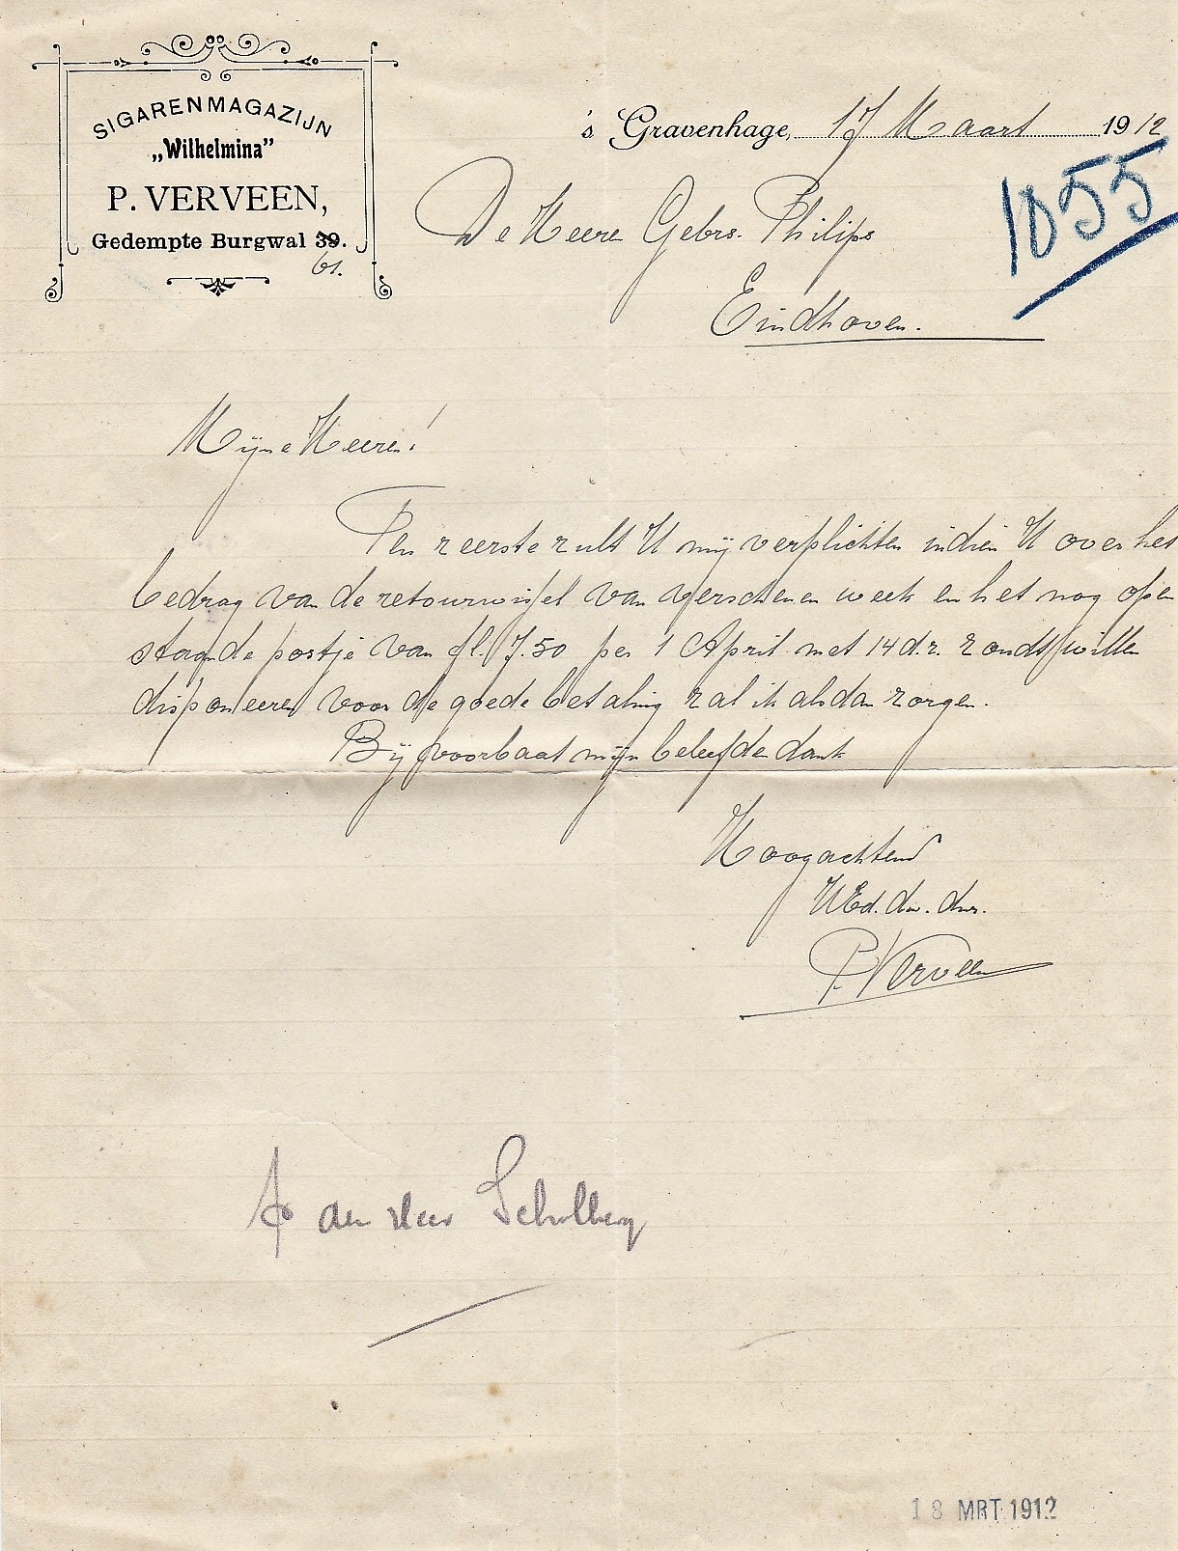 SIGARENMAGAZIJN
„Wilhelmina”
P. VERVEEN,
Gedempte Burgwal 39.
61.
's Gravenhage, 17 Maart 1912
1055
De Heere Gebrs. Philips
Eindhoven.
Mijne Heeren!
Ten zeerste zult U mij verplichten indien U over het
bedrag van de retourwissel van verschenen week en het nog open
staande postje van fl. 7.50 per 1 April met 14 d.z. zoudt willen
disponeeren voor de goede betaling zal ik alsdan zorgen.
Bij voorbaat mijn beleefde dank
Hoogachtend
UEd. dw. dnr.
P. Verveen
18 MRT 1912